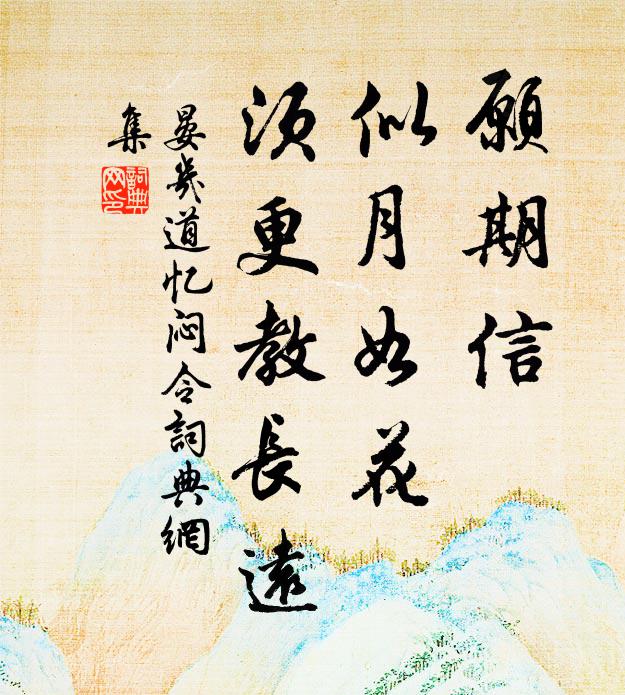 願期信
似月如花
須更教長遠
晏幾道忆闷令詞典網
集
詞典
网印